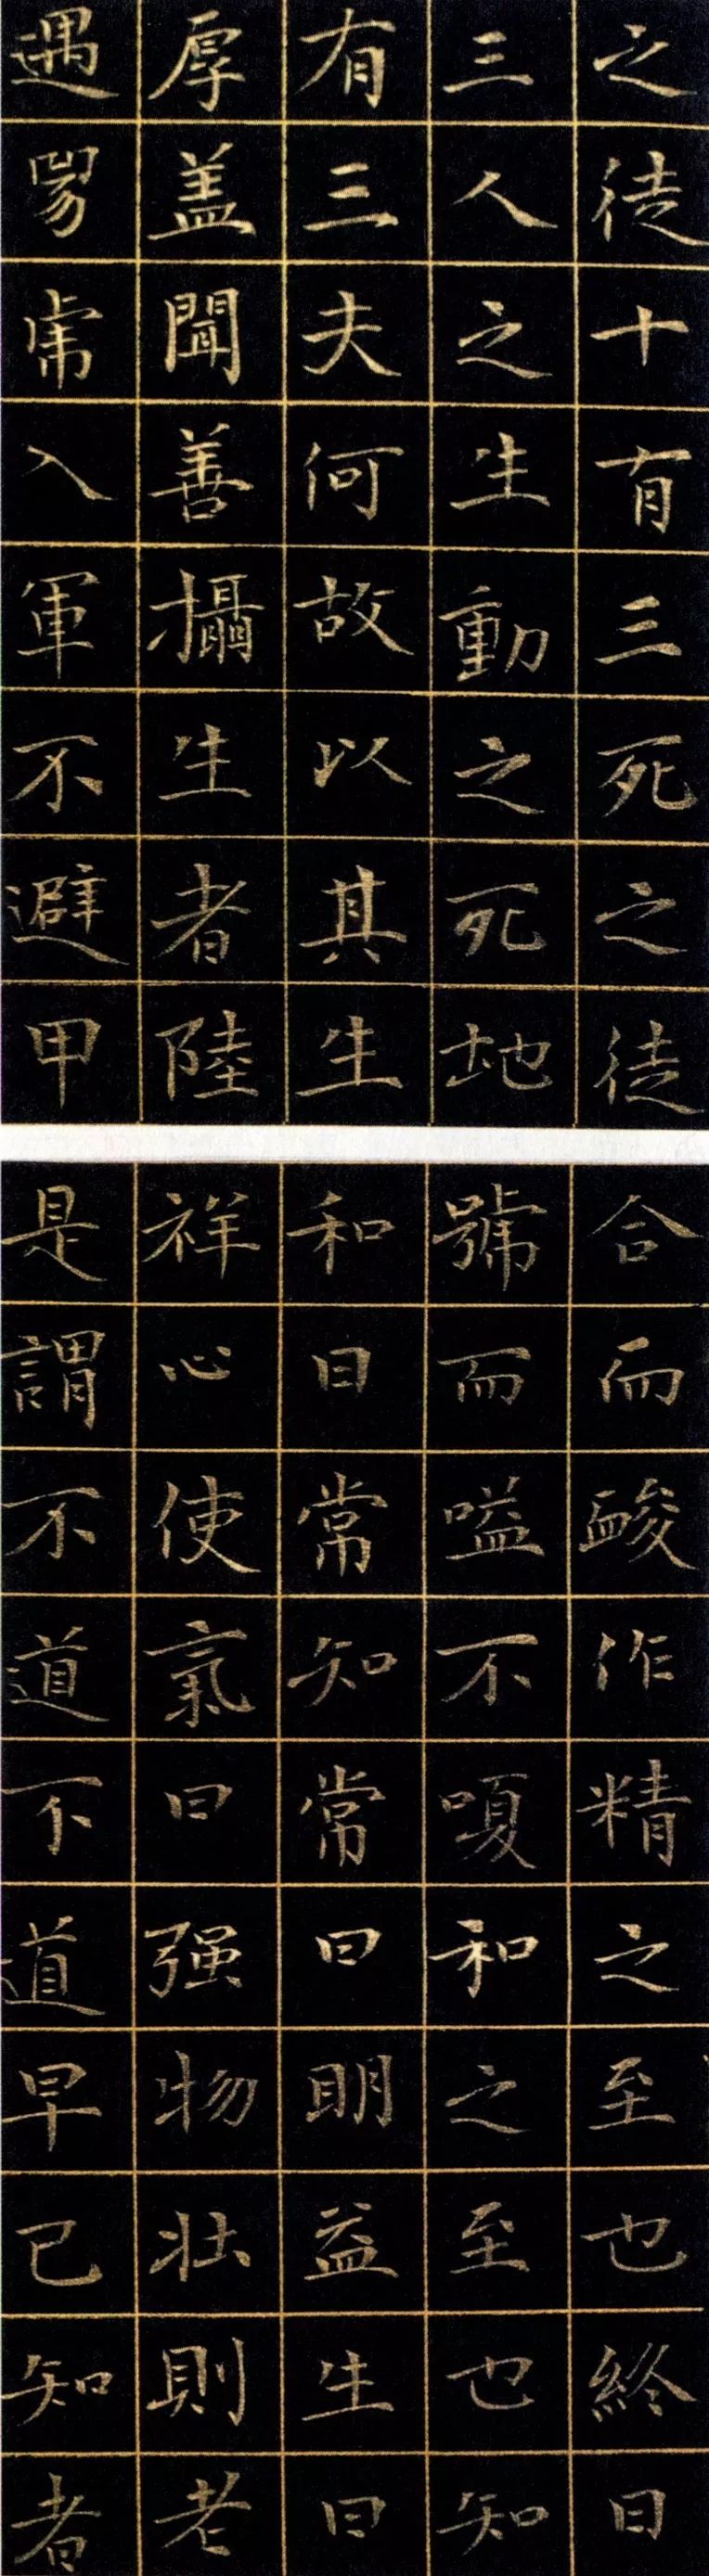 之徒十有三死之徒
三人之生動之死地
有三夫何故以其生
厚盖聞善攝生者陸
遇兕虎入軍不避甲
合而䘒作精之至也終日
號而嗌不嗄和之至也知
和曰常知常曰明益生曰
祥心使氣曰强物壯則老
是謂不道不道早已知者